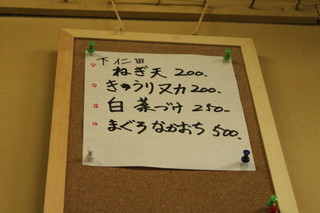 下仁田
ねぎ天 200.
きゅうりヌカ 200.
白菜づけ 250.
まぐろなかおち 500.